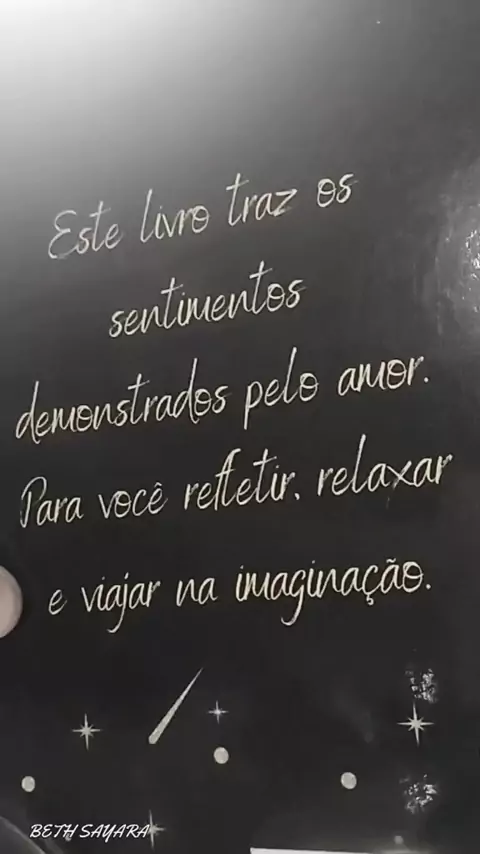 Este livro traz os
sentimentos
demonstrados pelo amor.
Para você refletir, relaxar
e viajar na imaginação.
BETH SAYARA